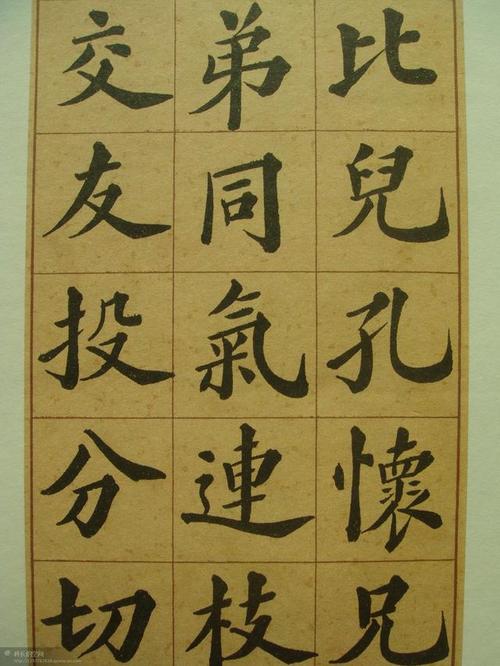 比兒孔懷兄
弟同氣連枝
交友投分切